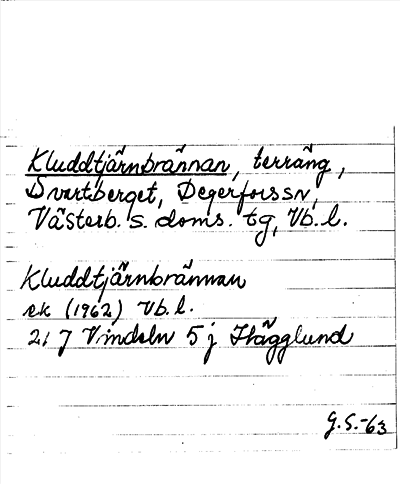 Kluddtjärnbrännan, terräng,
Svartberget, Degerforssn,
Västerb. s. doms. tg, Vb. l.
Kluddtjärnbrännan
ek (1962) Vb. l.
21 J Vindeln 5 j Hägglund
G.S.-63